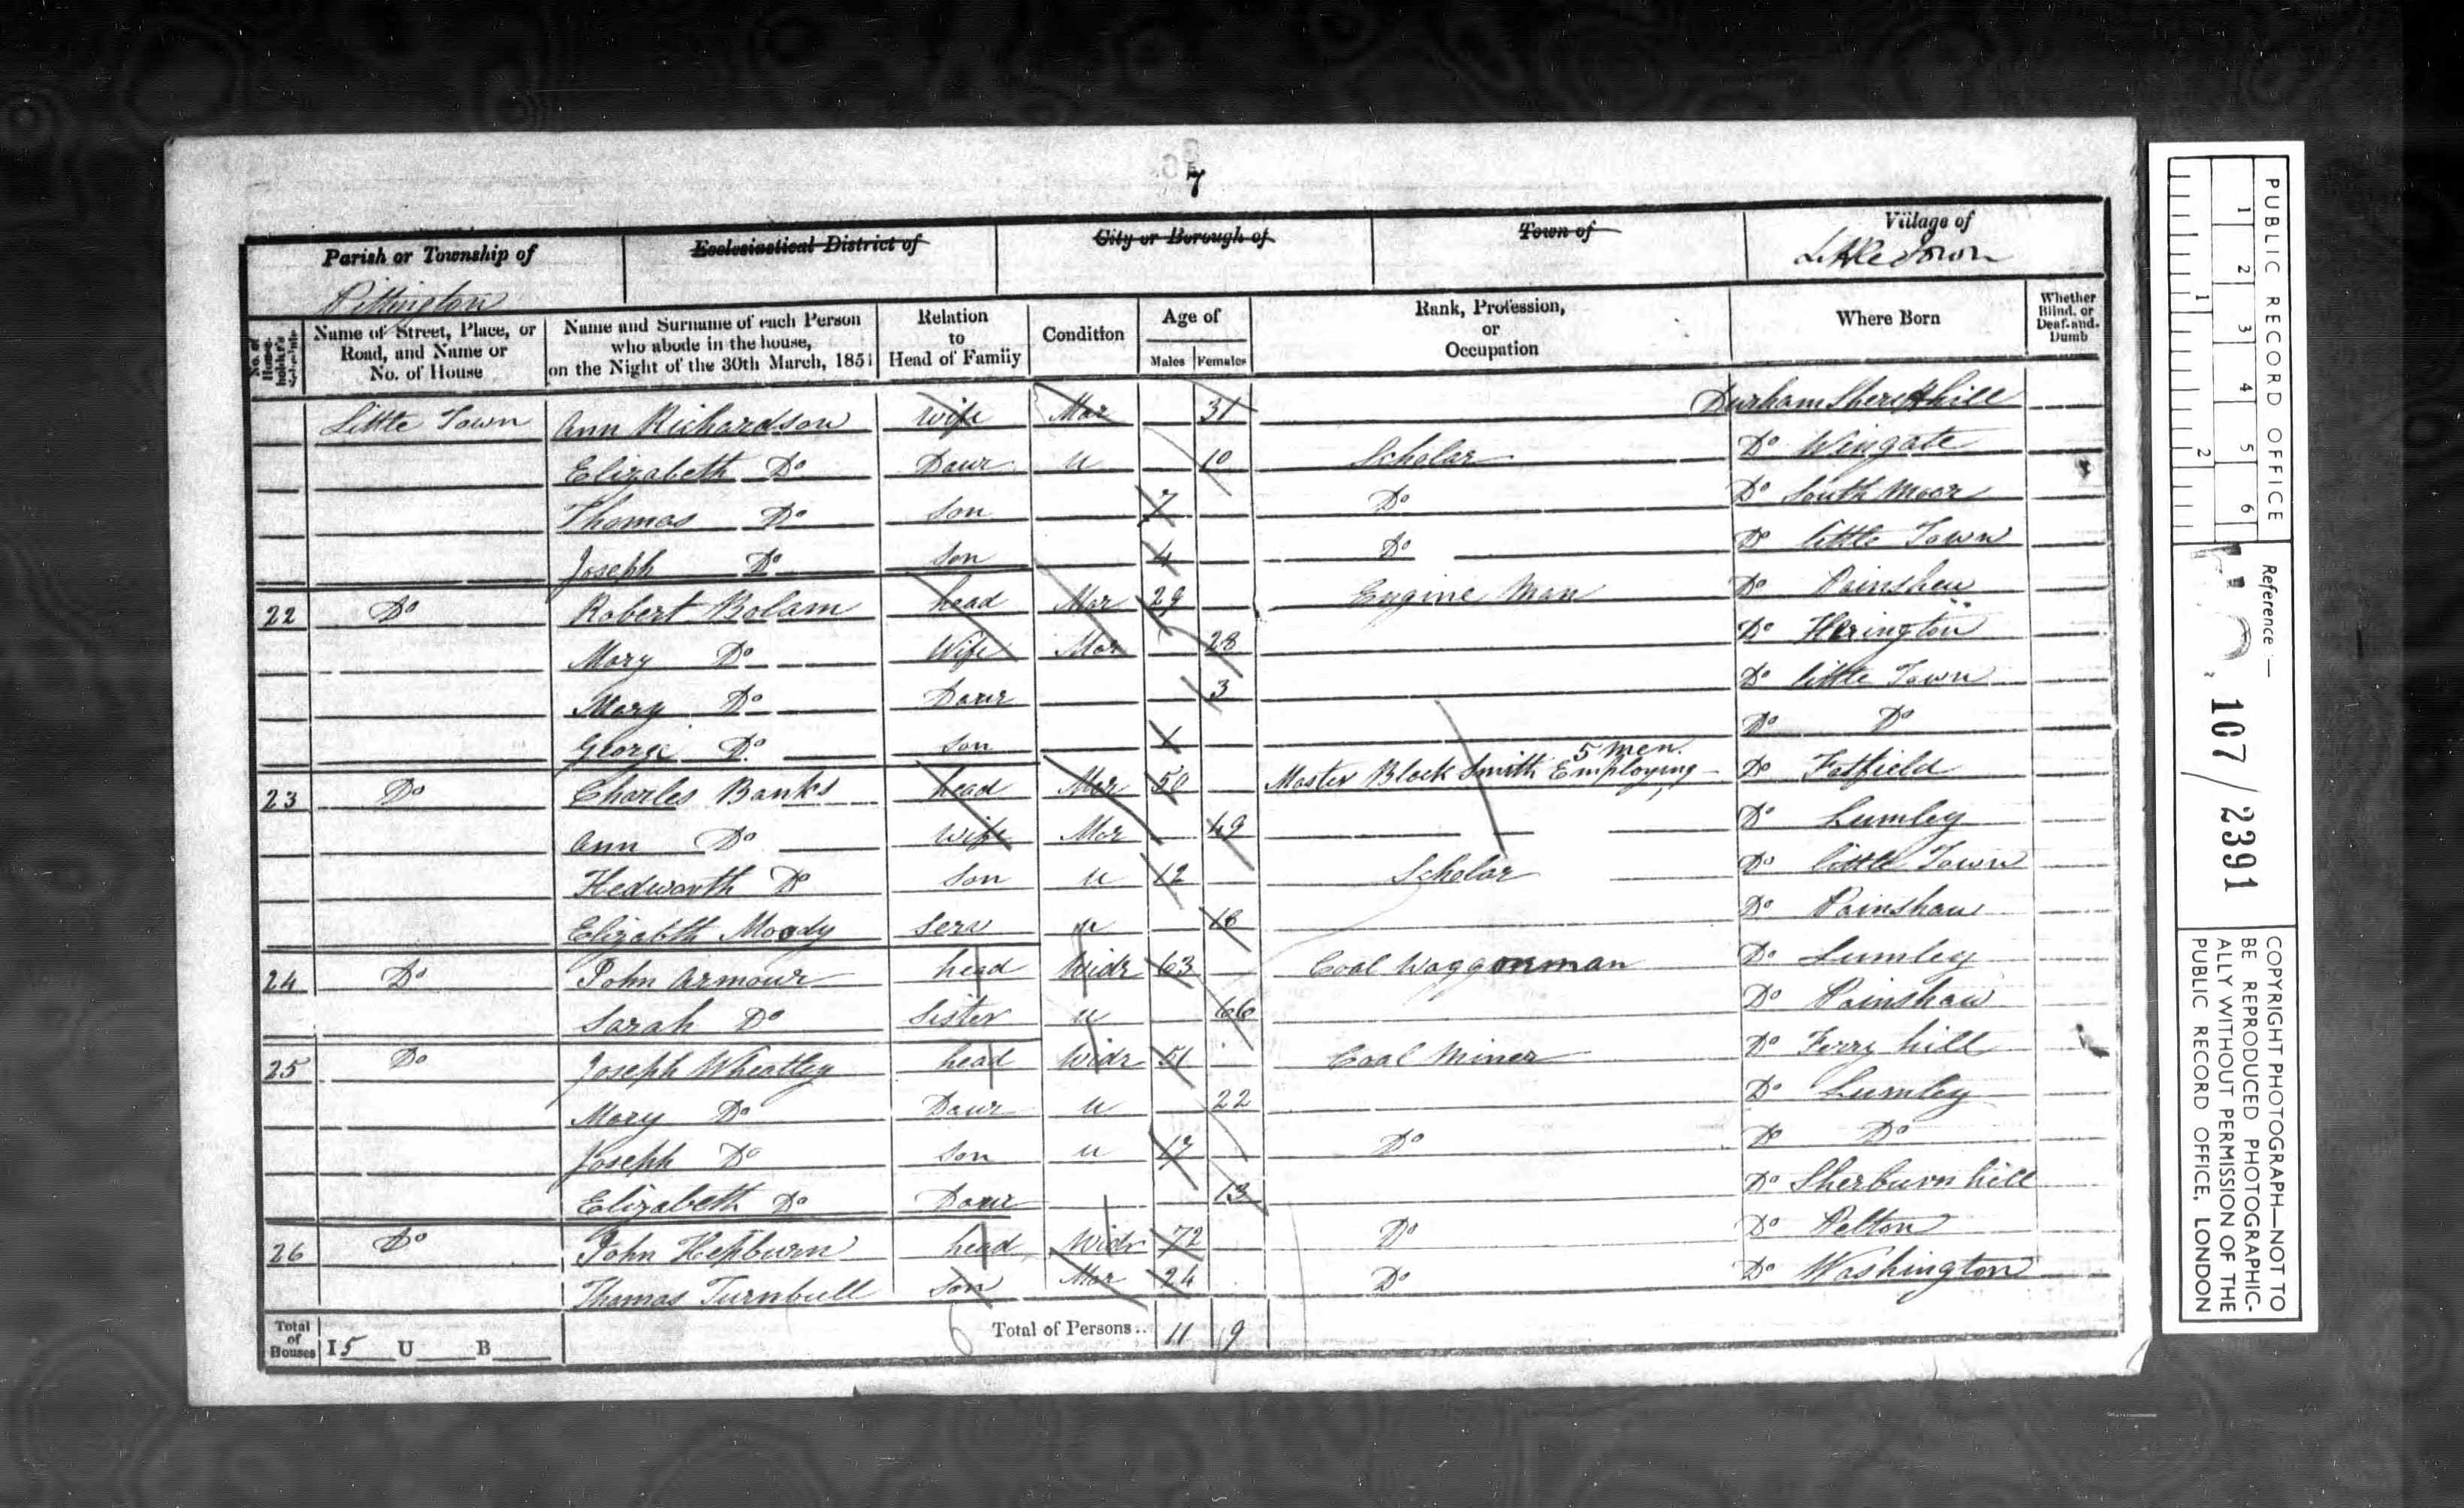 7
Parish or Township of
Ecclesiastical District of
City or Borough of
Town of
Village of
Pittington
Little Town
No. of House-holder's Schedule
Name of Street, Place, or Road, and Name or No. of House
Name and Surname of each Person who abode in the house, on the Night of the 30th March, 1851
Relation to Head of Family
Condition
Age of
Males Females
Rank, Profession, or Occupation
Where Born
Whether Blind, or Deaf-and-Dumb
Little Town Ann Richardson Wife Mar 31 Durham
Elizabeth Do Daur U 10 Scholar Do Wingate
Thomas Do Son 7 Do Do South Moor
Joseph Do Son 4 Do Do little Town
22 Do Robert Bolam head Mar 29 Engine Man Do Painshew
Mary Do Wife Mar 28 Do Herington
Mary Do Daur 3 Do little Town
George Do Son Do Do
23 Do Charles Banks head Mar 50 Master Black Smith Employing 5 men. Do Fatfield
Ann Do Wife Mar 49 Do Lumley
Hedworth Do Son U 12 Scholar Do little Town
Elizabth Moody Serv U 16 Do Painshaw
24 Do John Armour head Widr 63 Coal Waggonman Do Lumley
Sarah Do Sister U 66 Do Painshaw
25 Do Joseph Wheatley head Widr 51 Coal Miner Do Ferry hill
Mary Do Daur U 22 Do Lumley
Joseph Do Son U 17 Do Do Do
Elizabeth Do Daur 13 Do Sherburn hill
26 Do John Hepburn head Widr 72 Do Do Pelton
Thomas Turnbull Son Mar 24 Do Do Washington
Total of Houses I 5 U B
Total of Persons.. 11 9
PUBLIC RECORD OFFICE
1 2 3 4 5 6
1 2
Reference :—
107/2391
COPYRIGHT PHOTOGRAPH—NOT TO
BE REPRODUCED PHOTOGRAPHIC-
ALLY WITHOUT PERMISSION OF THE
PUBLIC RECORD OFFICE, LONDON